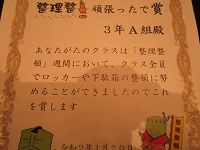 整理整頓頑張ったで賞
3年A組殿
あなたがたのクラスは「整理整
頓」週間において、クラス全員
でロッカーや下駄箱の整頓に努
めることができましたのでこれ
を賞します
令和2年1月20日